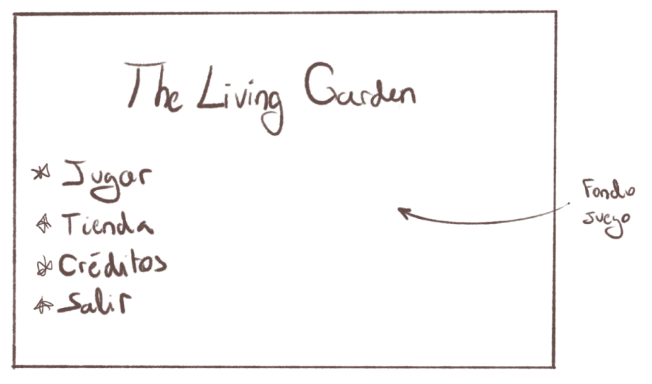 The Living Garden
Jugar
Tienda
Créditos
Salir
Fondo
Juego